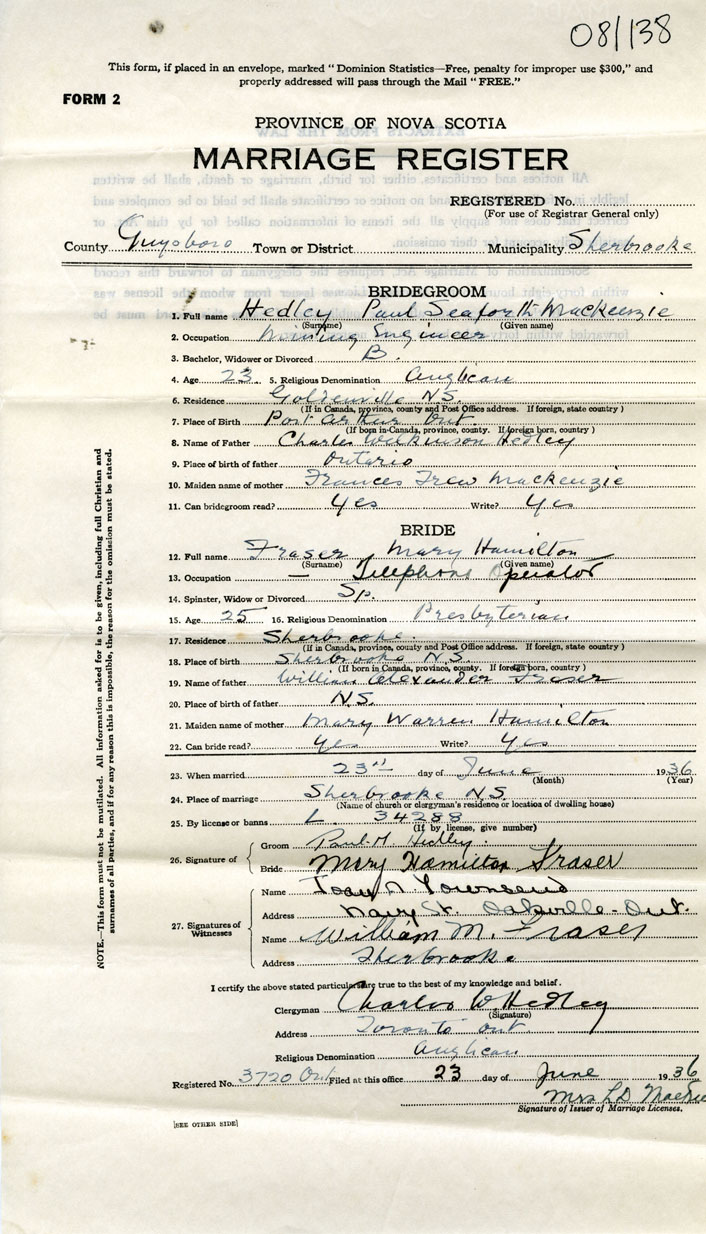 08/138
This form, if placed in an envelope, marked "Dominion Statistics—Free, penalty for improper use $300," and
properly addressed will pass through the Mail "FREE."
FORM 2
PROVINCE OF NOVA SCOTIA
MARRIAGE REGISTER
REGISTERED No.
(For use of Registrar General only)
County Guysboro Town or District Municipality Sherbrooke
BRIDEGROOM
1. Full name Hedley Paul Seaforth Mackenzie
(Surname) (Given name)
2. Occupation Mining Engineer
3. Bachelor, Widower or Divorced B.
4. Age 23 5. Religious Denomination Anglican
6. Residence Goldenville N.S.
(If in Canada, province, county and Post Office address. If foreign, state country)
7. Place of Birth Port Arthur Ont
(If born in Canada, province, county. If foreign born, country)
8. Name of Father Charles Wilkinson Hedley
9. Place of birth of father Ontario
10. Maiden name of mother Frances Frew Mackenzie
11. Can bridegroom read? Yes Write? Yes
BRIDE
12. Full name Fraser Mary Hamilton
(Surname) (Given name)
13. Occupation — Telephone Operator
14. Spinster, Widow or Divorced Sp.
15. Age 25 16. Religious Denomination Presbyterian
17. Residence Sherbrooke.
(If in Canada, province, county and Post Office address. If foreign, state country)
18. Place of birth Sherbrooke N.S.
(If born in Canada, province, county. If foreign born, country)
19. Name of father William Alexander Fraser
20. Place of birth of father N.S.
21. Maiden name of mother Mary Warren Hamilton
22. Can bride read? Yes Write? Yes
23. When married 23rd day of June 1936
(Month) (Year)
24. Place of marriage Sherbrooke N.S.
(Name of church or clergyman's residence or location of dwelling house)
25. By license or banns L. 34288
(If by license, give number)
26. Signature of Groom Paul M Hedley.
Bride Mary Hamilton Fraser
27. Signatures of Witnesses
Name Joan N. Townsend
Address Navy St. Oakville-Ont.
Name William M. Fraser
Address Sherbrooke
I certify the above stated particulars are true to the best of my knowledge and belief.
Clergyman Charles W. Hedley
(Signature)
Address Toronto Ont
Religious Denomination Anglican
Registered No. 3720 Ont Filed at this office 23 day of June 1936
Mrs L D
Signature of Issuer of Marriage Licenses.
[SEE OTHER SIDE]
NOTE.—This form must not be mutilated. All information asked for is to be given, including full Christian and
surnames of all parties, and if for any reason this is impossible, the reason for the omission must be stated.